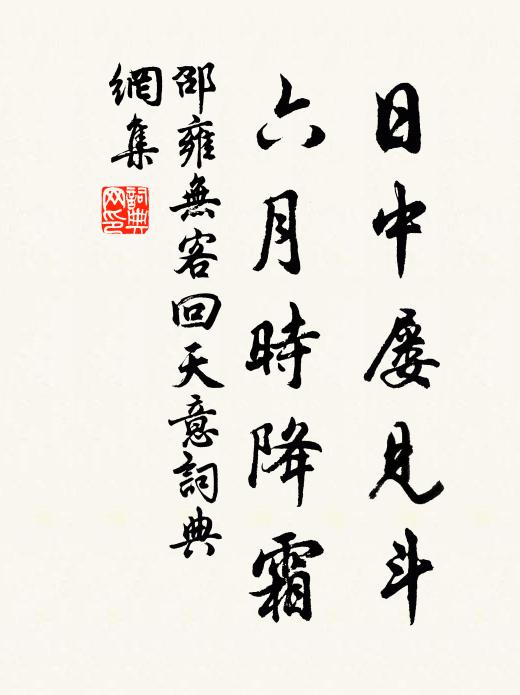 日中屢見斗
六月時降霜
邵雍無客回天意詞典
網集
詞典網印